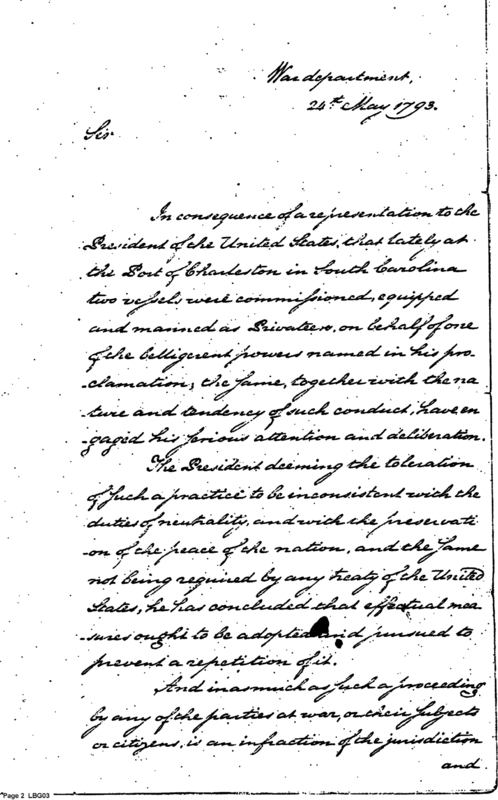 War department,
24th May 1793.
Sir
In consequence of a representation to the
President of the United States, that lately at
the Port of Charleston in South Carolina
two vessels were commissioned, equipped
and manned as Privateers, on behalf of one
of the belligerent powers named in his pro
-clamation; the same, together with the na
-ture and tendency of such conduct, have en
-gaged his serious attention and deliberation.
The President deeming the toleration
of such a practice to be inconsistent with the
duties of neutrality, and with the preservati
-on of the peace of the nation, and the same
not being required by any treaty of the United
States, he has concluded that effectual mea
-sures ought to be adopted and pursued to
prevent a repetition of it.
And inasmuch as such a proceeding
by any of the parties at war, or their subjects
or citizens, is an infraction of the jurisdiction
and
Page 2 LBG03